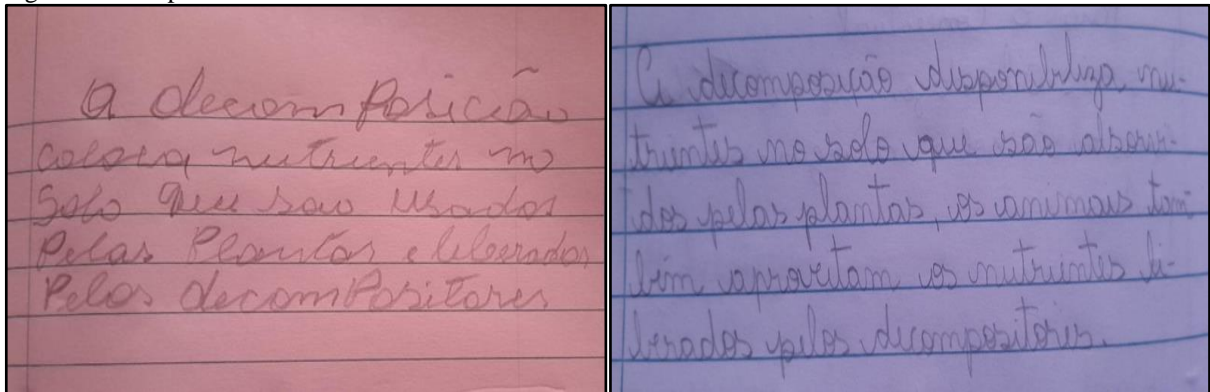 a decomposicão
coloca nutrientes no
Solo que sao usados
Pelas Plantas e liberados
Pelos decompositores
A decomposição disponibiliza nu-
trientes no solo que são absorvi-
dos pelas plantas, os animais tam
bém aproveitam os nutrientes li-
berados pelos decompositores.